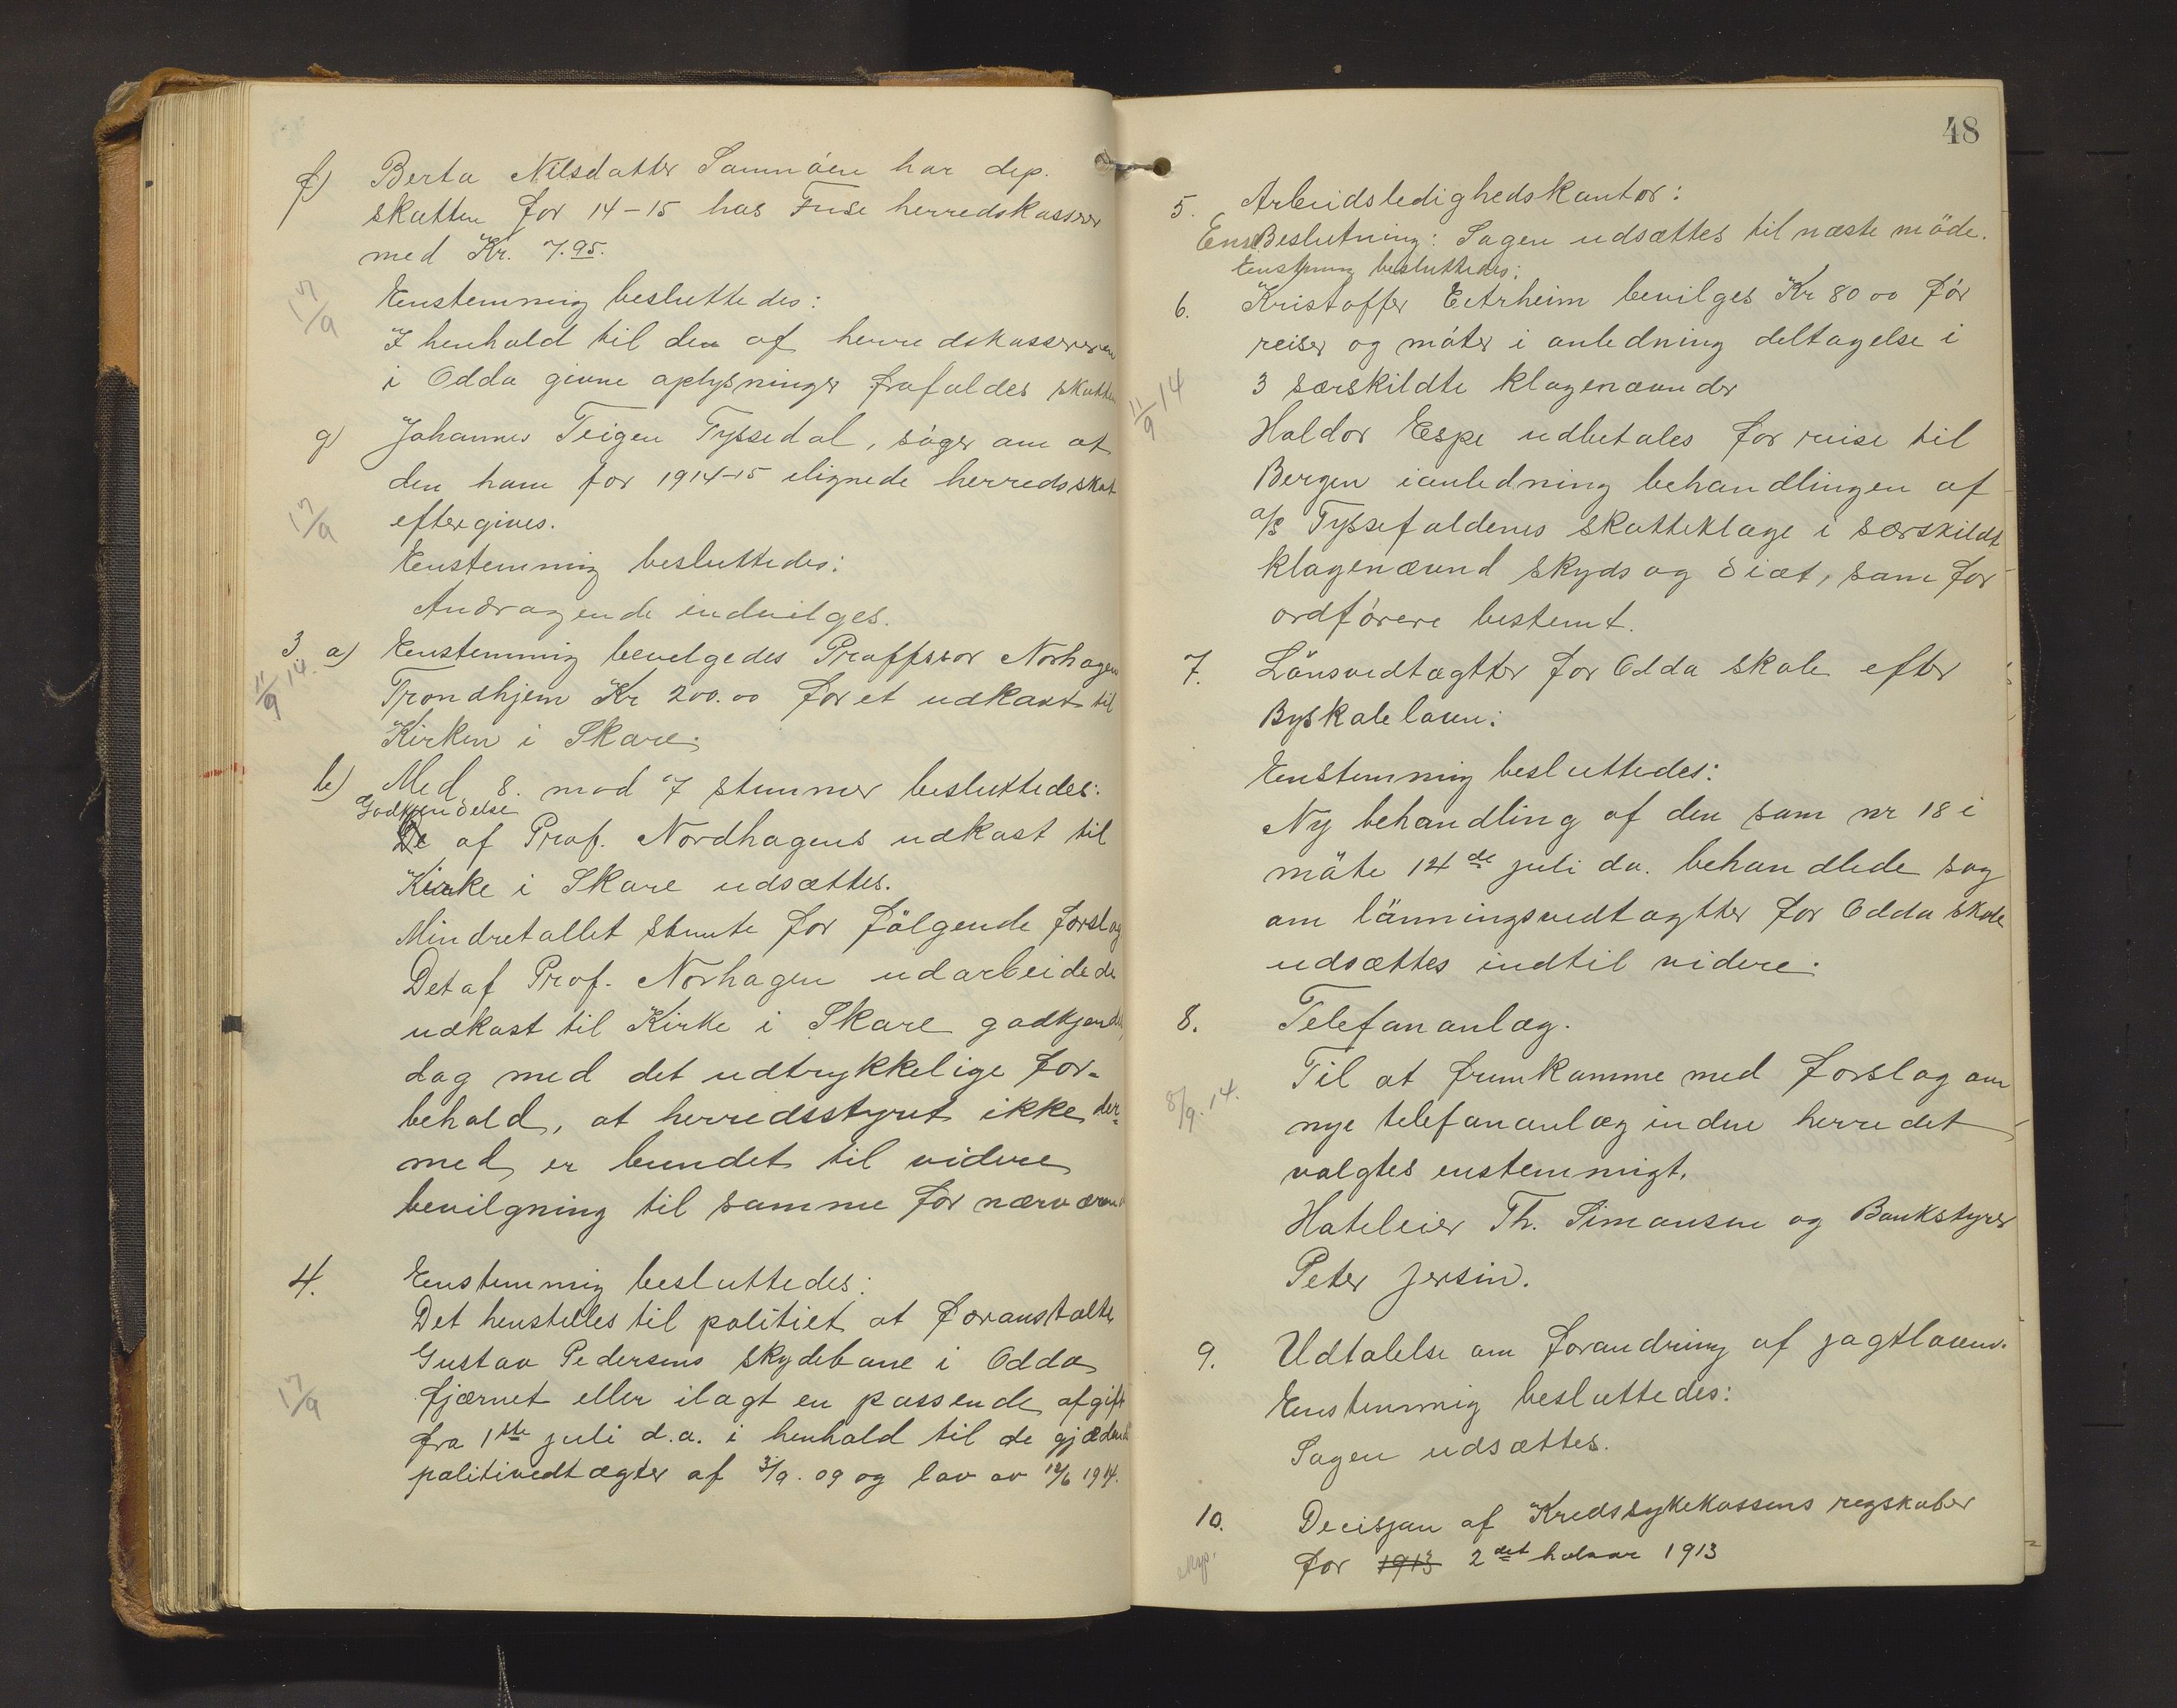 f) Berta Nilsdatter Samnöen har dep.
skatten for 14-15 hos Fuse herredskasserer
med Kr. 7.95.
17/9 Enstemmig besluttedes:
I henhold til den af herredskassereren
i Odda givne oplysninger frafaldes skatten
g) Johannes Teigen Tyssedal, söger om at
den ham for 1914-15 ilignede herredsskat
17/9 eftergives.
Enstemmig besluttedes:
Andragende indvilges.
3. a) Enstemmig bevelgedes Proffssor Norhagen
11/9 14. Trondhjem Kr 200.00 for et udkast til
Kirken i Skare.
b) Med 8. mod 7 stemmer besluttedes:
Godkjendelse
De af Prof. Nordhagens udkast til
Kirke i Skare udsættes.
Mindretallet stemte for fölgende forslag
Det af Prof. Norhagen udarbeidede
udkast til Kirke i Skare godkjendes,
dog med det udtrykkelige for-
behold, at herredsstyret ikke der-
med er bundet til videre
bevilgning til samme for nærværende
4. Enstemmig besluttedes:
Det henstilles til politiet at foranstalte
Gustav Pedersens skydebane i Odda
17/9 fjærnet eller ilagt en passende afgift
fra 1ste juli d.a. i henhold til de gjældende
politivedtægter af 3/9. 09 og lov av 12/6 1914.
48
5. Arbeidsledighedskontor:
Ens Beslutning: Sagen udsættes til næste möde.
Enstemmig besluttedes:
6. Kristoffer Eitrheim bevilges Kr 80 00 for
reiser og möter i anledning deltagelse i
11/9 14 3 særskildte klagenævnder
Haldor Espe udbetales for reise til
Bergen ianledning behandlingen af
a/s Tyssefaldenes skatteklage i særskildt
klagenævnd skyds og diæt, som for
ordförere bestemt.
7. Lönsvedtægtter for Odda skole efter
Byskoleloven:
Enstemmig besluttedes:
Ny behandling af den som nr 18 i
möte 14de juli da. behandlede sag
om lönningsvedtagtter for Odda skole
udsættes indtil videre.
8. Telefonanlæg.
Til at fremkomme med forslag om
8/9. 14. nye telefonanlæg inden herredet
valgtes enstemmigt.
Hoteleier Th. Simonsen og Bankstyrer
Peter Jersin.
9. Udtalelse om forandring af jagtloven.
Enstemmig besluttedes:
Sagen udsættes.
10. Decisjon af Kredssykekassens regskaber
for 1913 2det halvaar 1913